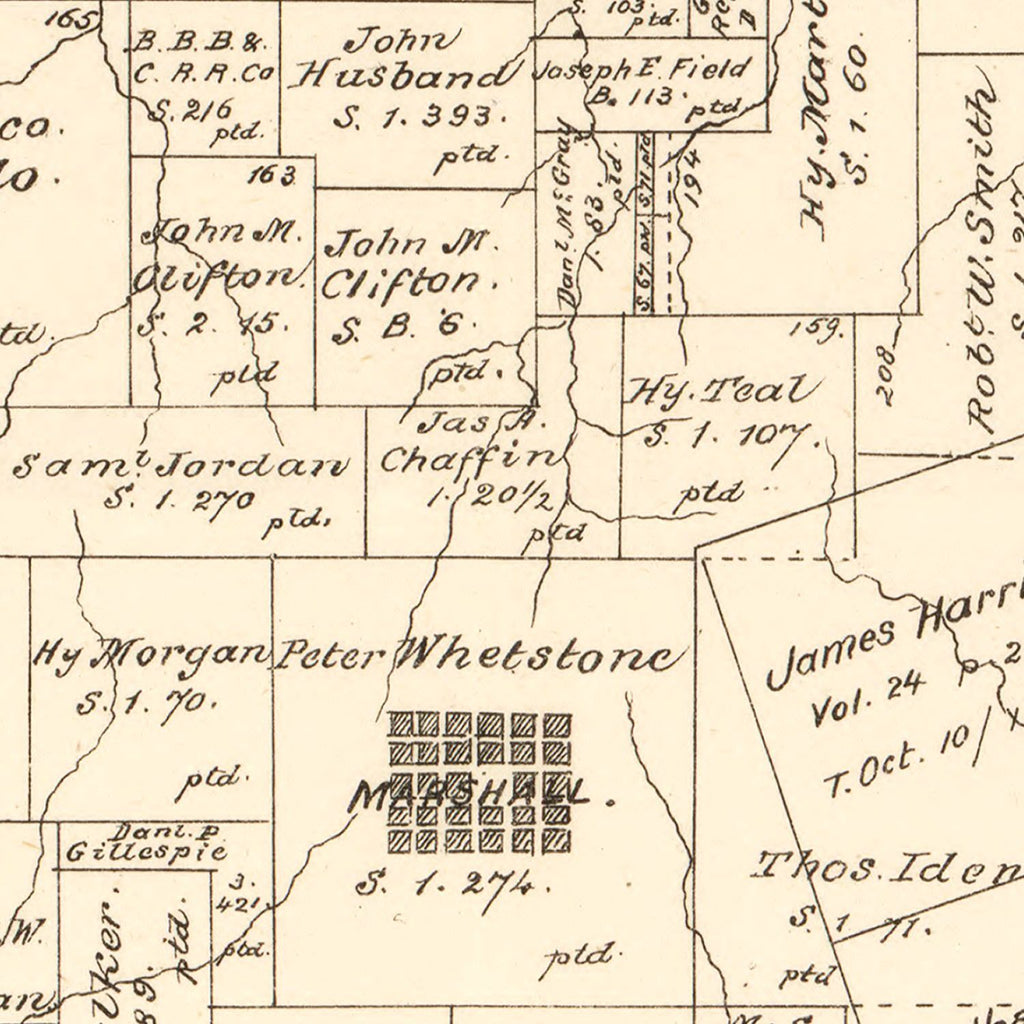 165
B. B. B. &.
C. R. R. Co
S. 216
ptd.
John
Husband
S. 1. 393.
ptd.
S. 103.
ptd.
Joseph E. Field
B. 113.
ptd.
Hy. Mart
S. 1. 60.
Robt. W. Smith
co.
163
John M.
Clifton.
S. 2. 15.
ptd
John M.
Clifton.
S. B. 6.
ptd.
Danl. McGray
1. 83.
ptd.
S 71 ptd
S. 67. ptd.
194
td.
159.
Hy. Teal
S. 1. 107.
ptd
208
Saml. Jordan
S. 1. 270
ptd.
Jas A.
Chaffin
1. 20 1/2
ptd
Hy Morgan
S. 1. 70.
ptd.
Peter Whetstone
MARSHALL.
S. 1. 274.
ptd.
James Harri
Vol. 24 p. 2
T. Oct. 10/
Thos. Iden
S. 1 71.
ptd
Danl. P.
Gillespie
3.
421.
ptd.
W.
an
lker.
89.
ptd.